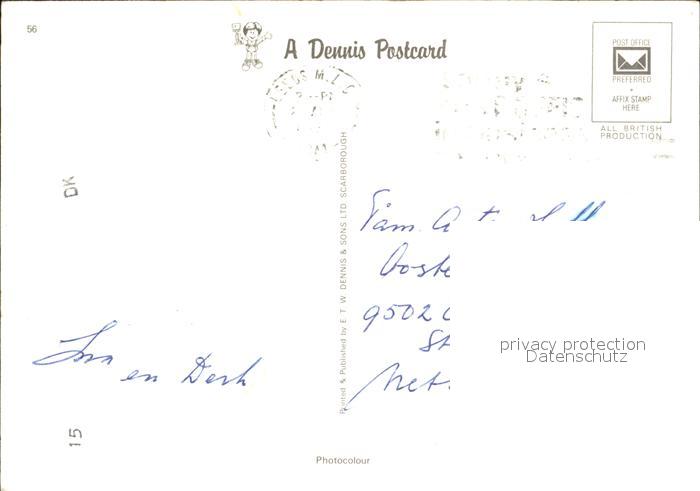 56
A Dennis Postcard
POST OFFICE
PREFERRED
AFFIX STAMP
HERE
ALL BRITISH
PRODUCTION
LEEDS
DK
15
Printed & Published by E. T. W. DENNIS & SONS LTD. SCARBOROUGH
Fam. A
Ooste
9502
St
Net.
en Derk
privacy protection
Datenschutz
Photocolour